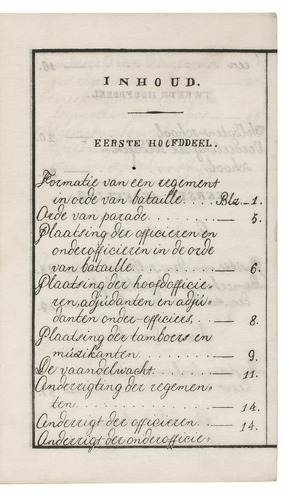 INHOUD.
EERSTE HOOFDDEEL.
Formatie van een regement
in orde van bataille.... Blz. 1.
Orde van parade........ — 5.
Plaatsing der officieren en
onderofficieren in de orde
van bataille.......... — 6.
Plaatsing der hoofdofficie-
ren, adjudanten en adju-
danten onder-officiers,... — 8.
Plaatsing der tamboers en
muzikanten.......... — 9.
De vaandelwacht...... — 11.
Onderrigting der regemen-
ten.............. — 14.
Onderrigt der officieren.. — 14.
Onderrigt der onderofficie-